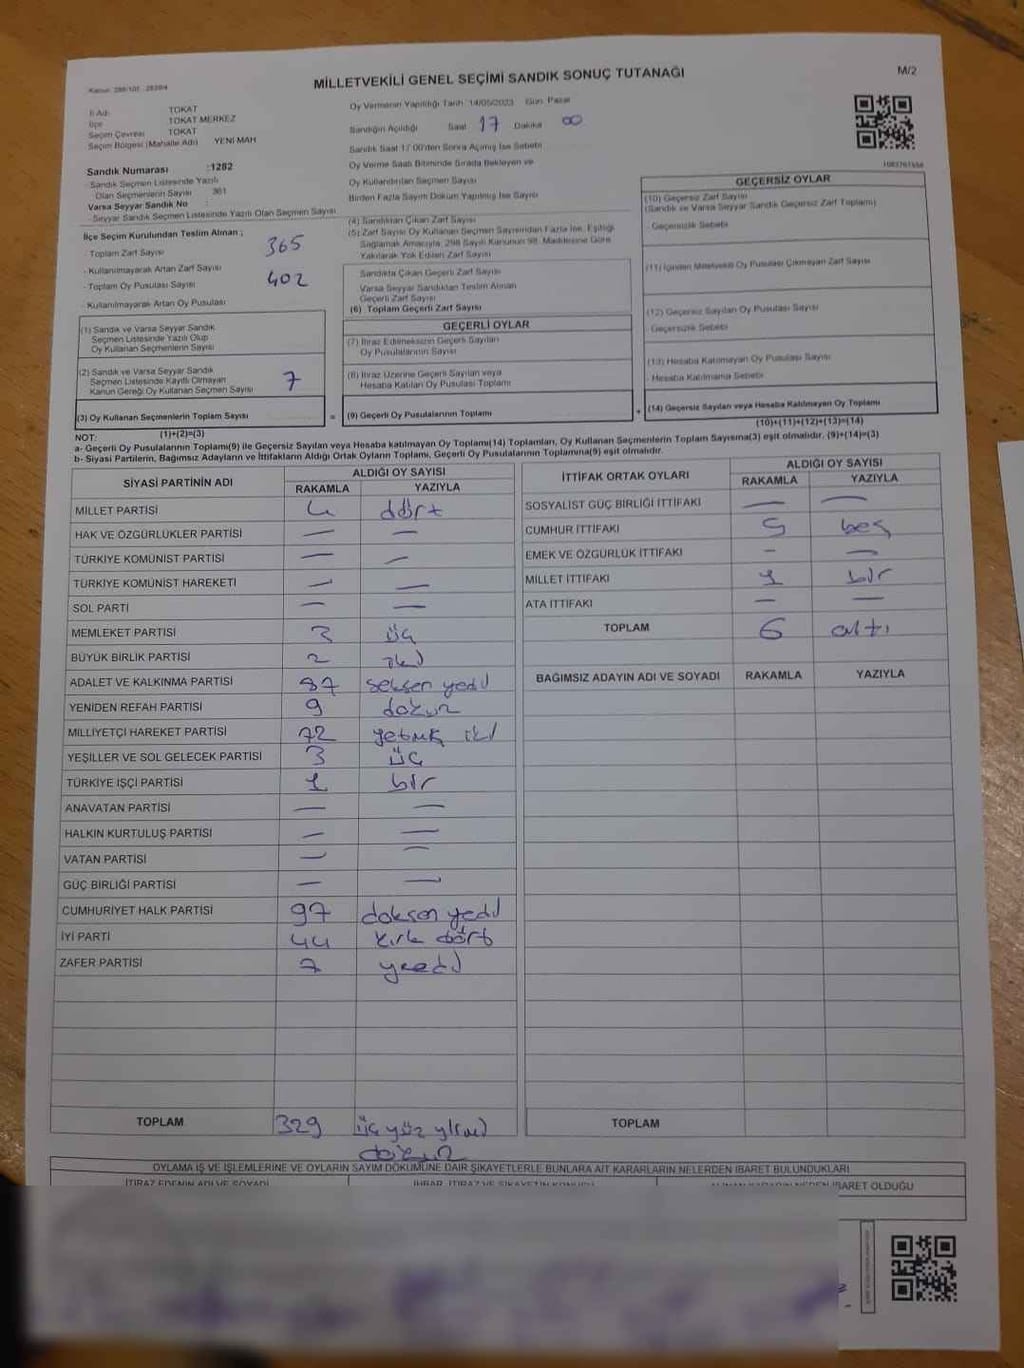 MİLLETVEKİLİ GENEL SEÇİMİ SANDIK SONUÇ TUTANAĞI
M/2
İl Adı TOKAT
İlçe TOKAT MERKEZ
Seçim Çevresi TOKAT
Seçim Bölgesi (Mahalle Adı) YENİ MAH
Sandık Numarası :1282
- Sandık Seçmen Listesinde Yazılı
Olan Seçmenlerin Sayısı 361
Varsa Seyyar Sandık No :
- Seyyar Sandık Seçmen Listesinde Yazılı Olan Seçmen Sayısı
İlçe Seçim Kurulundan Teslim Alınan ;
- Toplam Zarf Sayısı 365
- Kullanılmayarak Artan Zarf Sayısı
- Toplam Oy Pusulası Sayısı 402
- Kullanılmayarak Artan Oy Pusulası
(1) Sandık ve Varsa Seyyar Sandık
Seçmen Listesinde Yazılı Olup
Oy Kullanan Seçmenlerin Sayısı
(2) Sandık ve Varsa Seyyar Sandık
Seçmen Listesinde Kayıtlı Olmayan
Kanun Gereği Oy Kullanan Seçmen Sayısı 7
(3) Oy Kullanan Seçmenlerin Toplam Sayısı
(1)+(2)=(3)
Oy Vermenin Yapıldığı Tarih 14/05/2023 Gün Pazar
Sandığın Açıldığı Saat 17 Dakika 00
Sandık Saat 17:00'den Sonra Açılmış İse Sebebi
Oy Verme Saati Bitiminde Sırada Bekleyen ve
Oy Kullandırılan Seçmen Sayısı
Birden Fazla Sayım Döküm Yapılmış İse Sayısı
(4) Sandıktan Çıkan Zarf Sayısı
(5) Zarf Sayısı Oy Kullanan Seçmen Sayısından Fazla İse, Eşitliği
Sağlamak Amacıyla, 298 Sayılı Kanunun 98. Maddesine Göre
Yakılarak Yok Edilen Zarf Sayısı
Sandıkta Çıkan Geçerli Zarf Sayısı
Varsa Seyyar Sandıktan Teslim Alınan
Geçerli Zarf Sayısı
(6) Toplam Geçerli Zarf Sayısı
GEÇERLİ OYLAR
(7) İtiraz Edilmeksizin Geçerli Sayılan
Oy Pusulalarının Sayısı
(8) İtiraz Üzerine Geçerli Sayılan veya
Hesaba Katılan Oy Pusulası Toplamı
= (9) Geçerli Oy Pusulalarının Toplamı
GEÇERSİZ OYLAR
(10) Geçersiz Zarf Sayısı
(Sandık ve Varsa Seyyar Sandık Geçersiz Zarf Toplamı)
- Geçersizlik Sebebi
(11) İçinden Milletvekili Oy Pusulası Çıkmayan Zarf Sayısı
(12) Geçersiz Sayılan Oy Pusulası Sayısı
- Geçersizlik Sebebi
(13) Hesaba Katılmayan Oy Pusulası Sayısı
- Hesaba Katılmama Sebebi
+ (14) Geçersiz Sayılan veya Hesaba Katılmayan Oy Toplamı
(10)+(11)+(12)+(13)=(14)
NOT:
a- Geçerli Oy Pusulalarının Toplamı(9) ile Geçersiz Sayılan veya Hesaba katılmayan Oy Toplamı(14) Toplamları, Oy Kullanan Seçmenlerin Toplam Sayısına(3) eşit olmalıdır. (9)+(14)=(3)
b- Siyasi Partilerin, Bağımsız Adayların ve İttifakların Aldığı Oyların Toplamı, Geçerli Oy Pusulalarının Toplamına(9) eşit olmalıdır.
SİYASİ PARTİNİN ADI ALDIĞI OY SAYISI
RAKAMLA YAZIYLA
MİLLET PARTİSİ 4 dört
HAK VE ÖZGÜRLÜKLER PARTİSİ — —
TÜRKİYE KOMÜNİST PARTİSİ — —
TÜRKİYE KOMÜNİST HAREKETİ — —
SOL PARTİ — —
MEMLEKET PARTİSİ 3 üç
BÜYÜK BİRLİK PARTİSİ 2 iki
ADALET VE KALKINMA PARTİSİ 87 seksen yedi
YENİDEN REFAH PARTİSİ 9 dokuz
MİLLİYETÇİ HAREKET PARTİSİ 72 yetmiş iki
YEŞİLLER VE SOL GELECEK PARTİSİ 3 üç
TÜRKİYE İŞÇİ PARTİSİ 1 bir
ANAVATAN PARTİSİ — —
HALKIN KURTULUŞ PARTİSİ — —
VATAN PARTİSİ — —
GÜÇ BİRLİĞİ PARTİSİ — —
CUMHURİYET HALK PARTİSİ 97 doksan yedi
İYİ PARTİ 44 kırk dört
ZAFER PARTİSİ 7 yedi
TOPLAM 329 üç yüz yirmi
dokuz
İTTİFAK ORTAK OYLARI ALDIĞI OY SAYISI
RAKAMLA YAZIYLA
SOSYALİST GÜÇ BİRLİĞİ İTTİFAKI — —
CUMHUR İTTİFAKI 5 beş
EMEK VE ÖZGÜRLÜK İTTİFAKI — —
MİLLET İTTİFAKI 1 bir
ATA İTTİFAKI — —
TOPLAM 6 altı
BAĞIMSIZ ADAYIN ADI VE SOYADI RAKAMLA YAZIYLA
TOPLAM
OYLAMA İŞ VE İŞLEMLERİNE VE OYLARIN SAYIM DÖKÜMÜNE DAİR ŞİKAYETLERLE BUNLARA AİT KARARLARIN NELERDEN İBARET BULUNDUKLARI
İTİRAZ EDENİN ADI VE SOYADI
İHBAR, İTİRAZ VE ŞİKAYETİN KONUSU
İBARET OLDUĞU